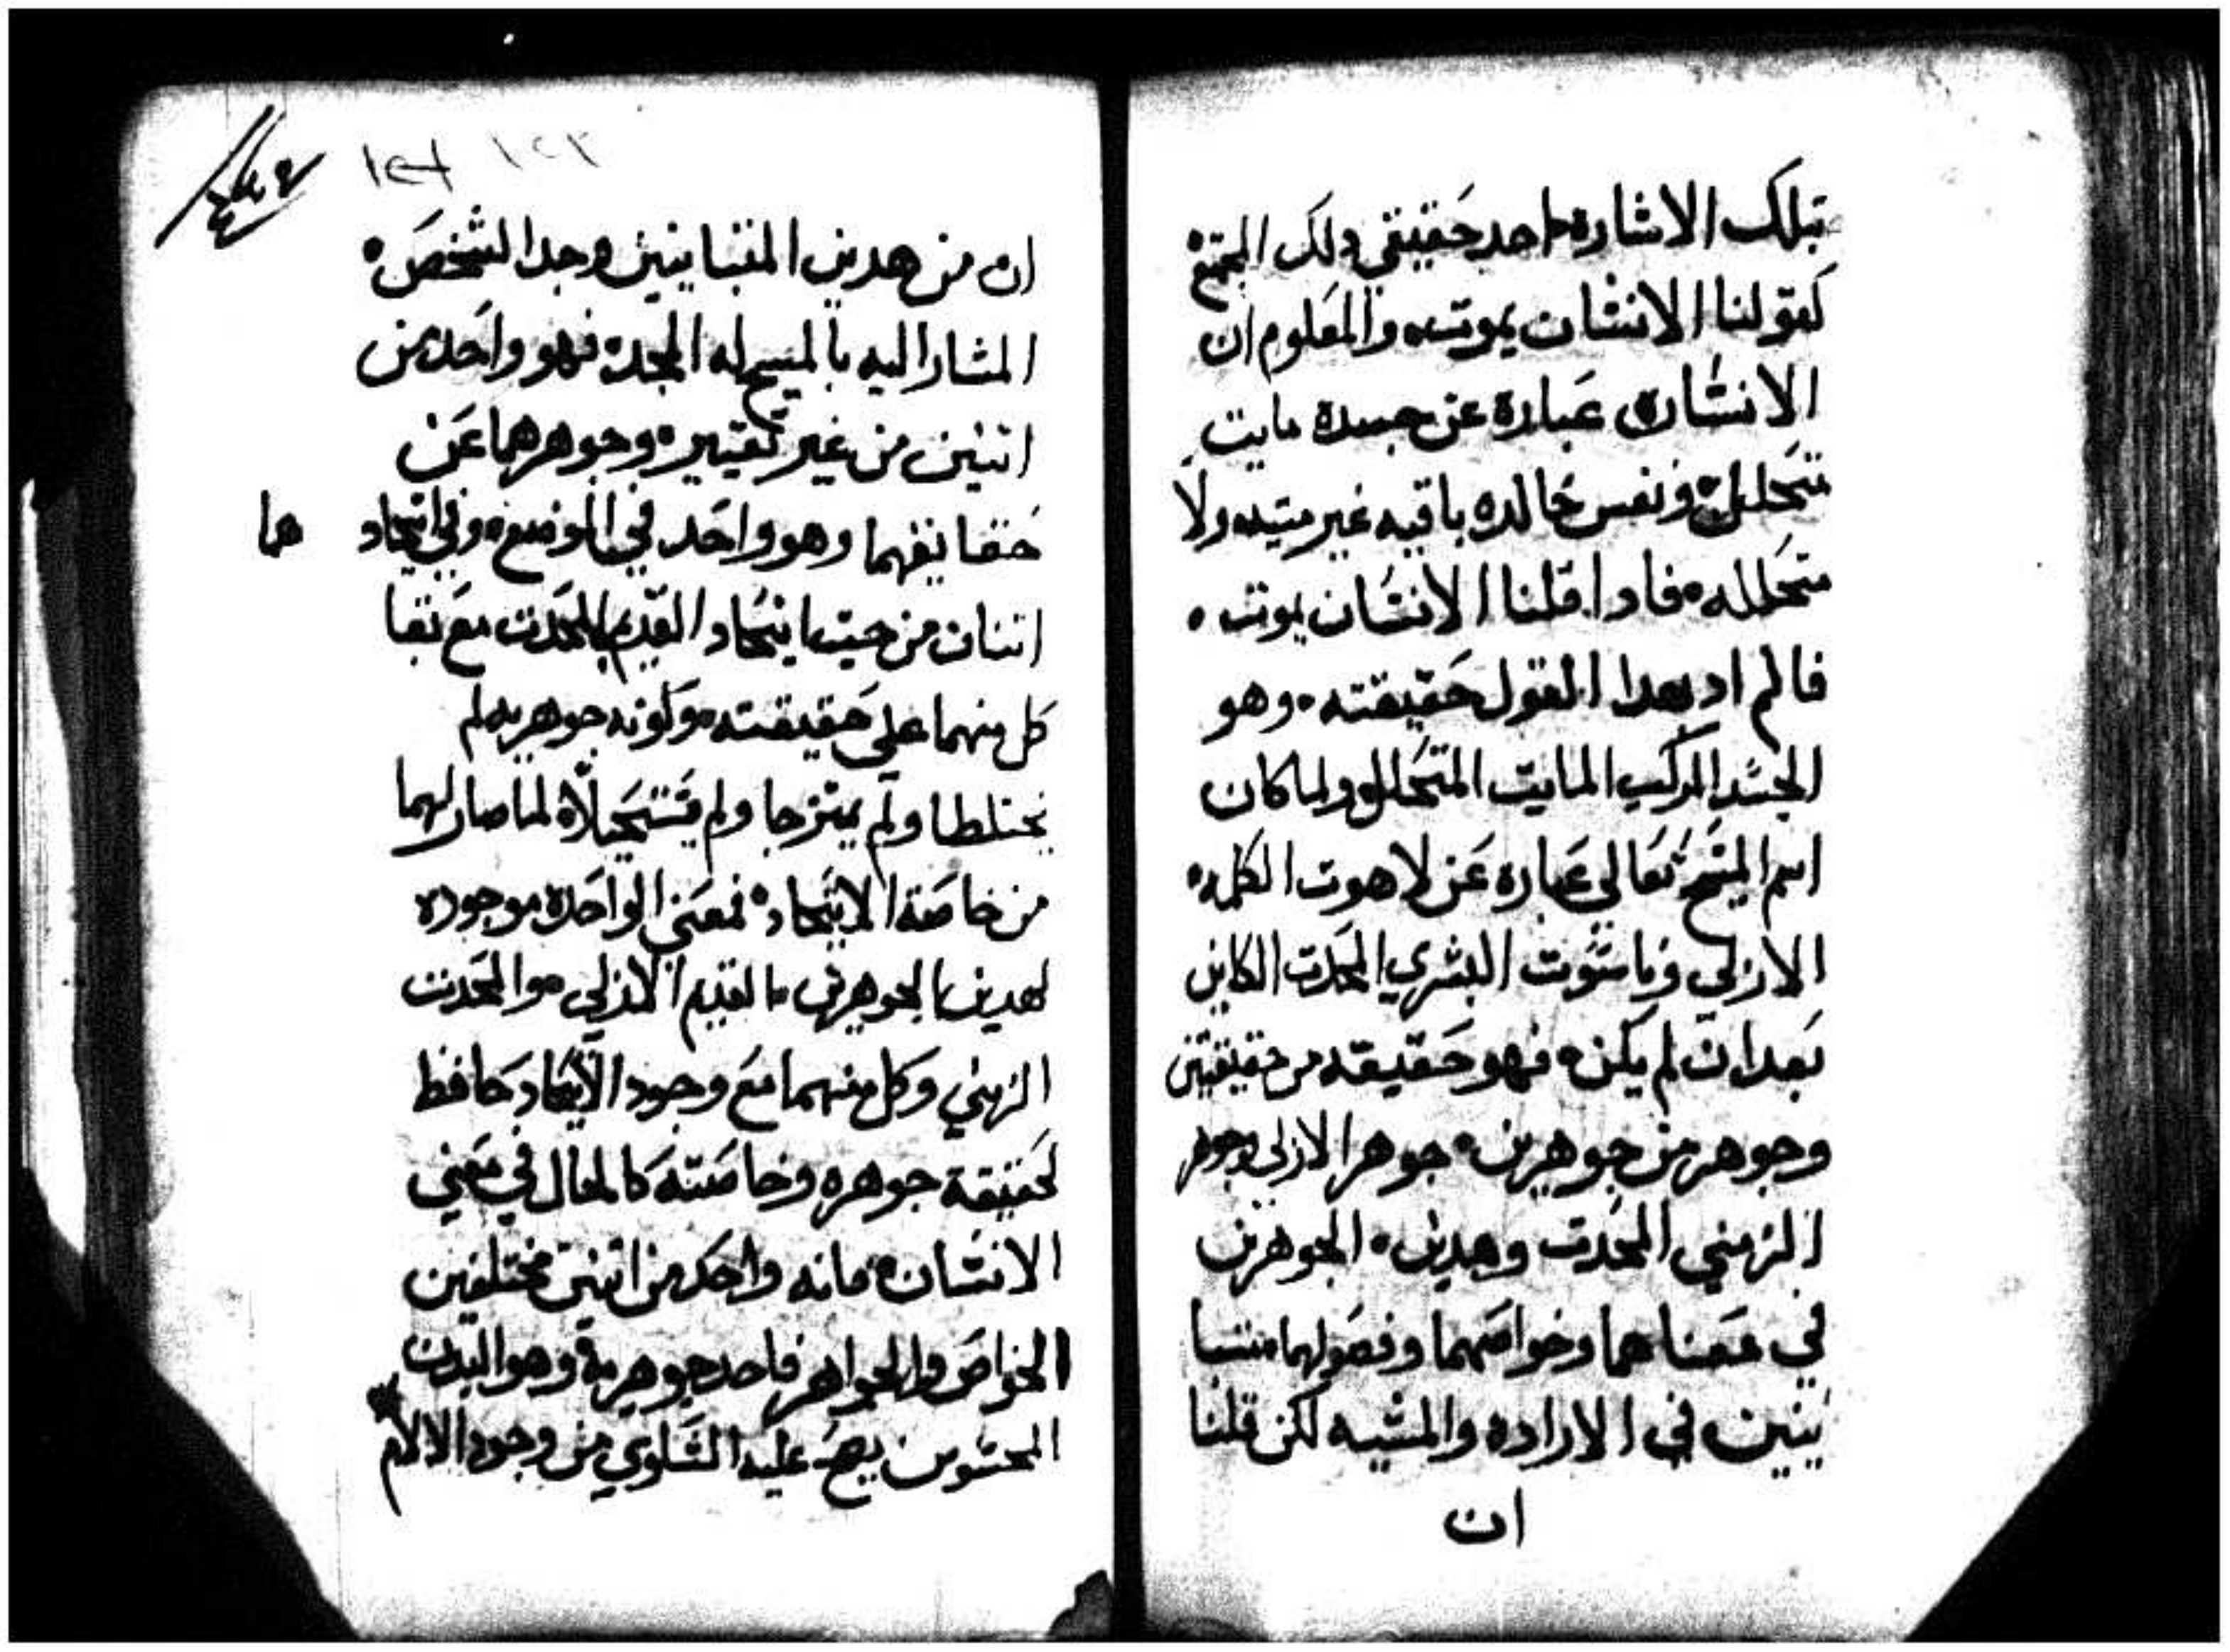 بتلك الاشاره احد حقيقي دلك المجتمع
كقولنا الانسان يموت والمعلوم ان
الانسان عبارة عن جسد مايت
متحلل ونفس خالده باقيه غير ميته ولا
متحلله فادا قلنا الانسان يموت
فالمراد بهدا القول حقيقته وهو
الجسد المركب المايت المتحلل ولما كان
اسم المسيح تعالي عباره عن لاهوت الكلمه
الازلي وناسوت البشري المحدت الكاين
بعد ان لم يكن فهو حقيقه من حقيقتين
وجوهر من جوهرين جوهر الازلي وجوهر
الزمني المحدت وهدين الجوهرين
في معناهما وخواصهما وفصولهما متبا
ينين في الاراده والمشيه لكن قلنا
ان
١٢٢
ان من هدين المتباينين وجد الشخص
المشار اليه بالمسيح له المجد فهو واحد من
اتنين من غير تغيير وجوهرهما عن
حقايقهما وهو واحد في الموضع وفي اتحاد هما
اتنان من حيت اتحاد القديم بالمحدت مع بقا
كل منهما علي حقيقته وكونه جوهريه لم
يختلطا ولم يمتزجا ولم يستحيلا لما صار لهما
من خاصة الاتحاد فمعني الواحد موجوده
لهدين الجوهرين القديم الازلي والمحدت
الزمني وكل منهما مع وجود الاتحاد حافظ
لحقيقة جوهره وخاصته كالحال في معني
الانسان فانه واحد من اتنين مختلفين
الخواص والجواهر فاحد جوهريه وهو البدن
المحسوس يصح عليه التساوي من وجود الالام